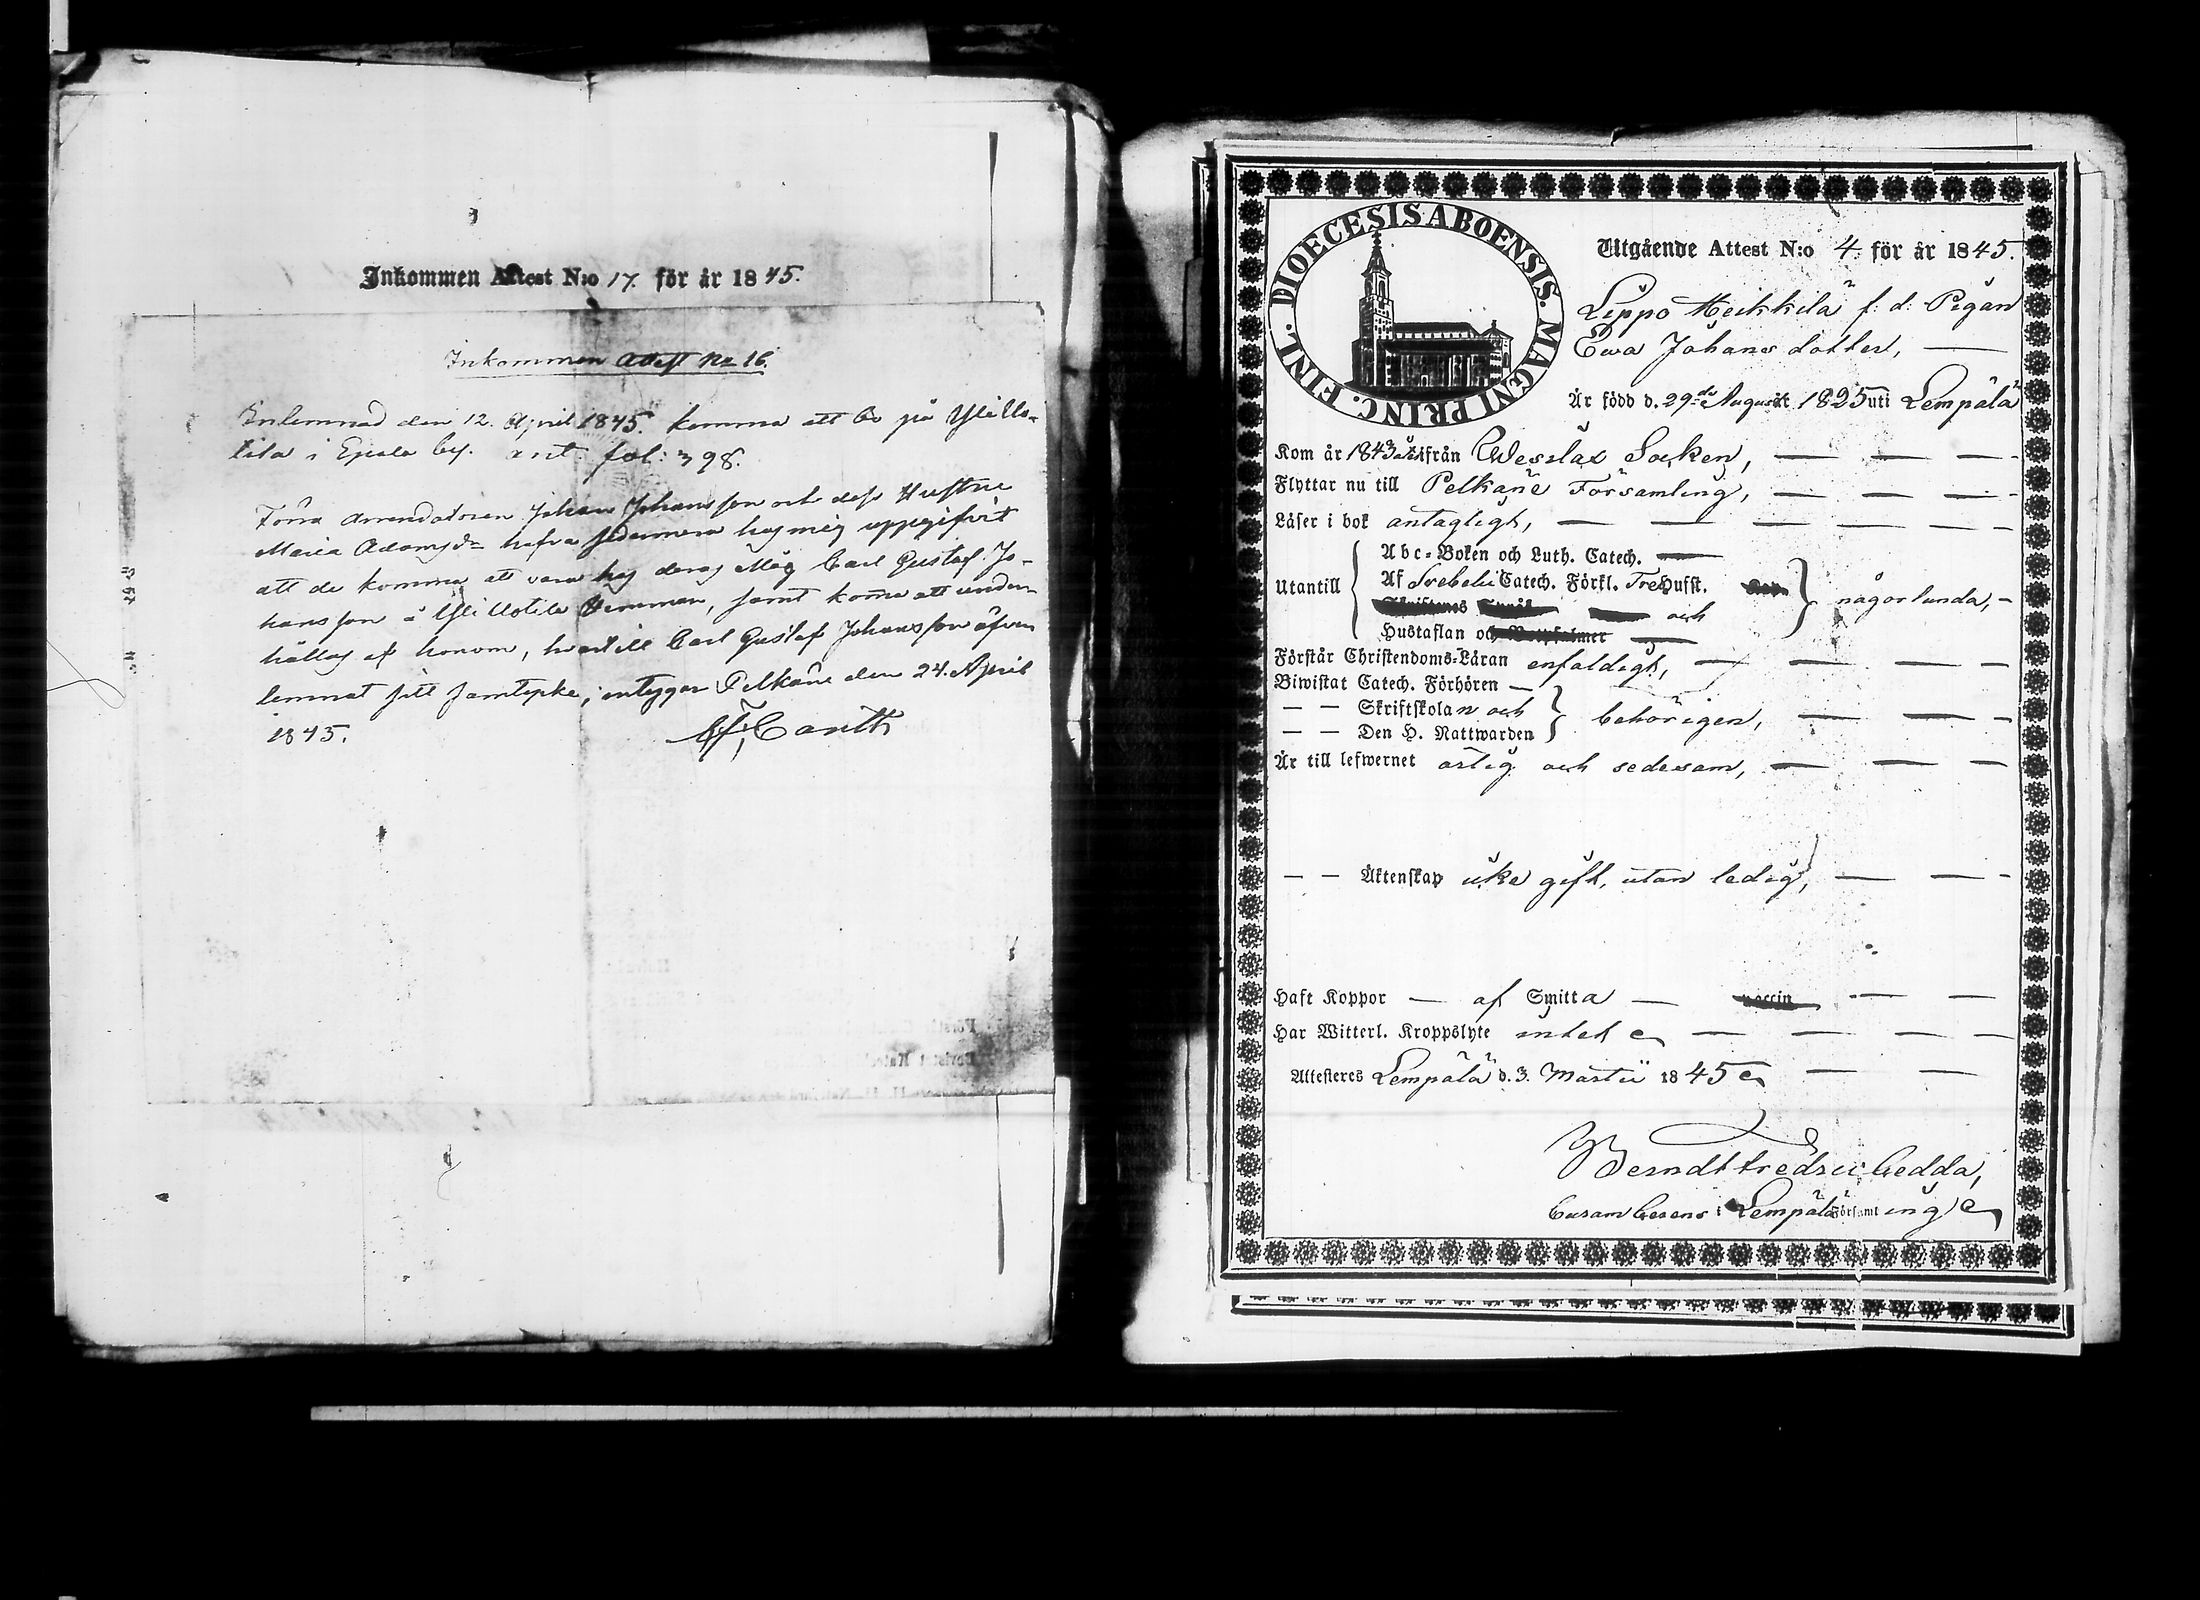 Inkommen Attest N:o 17. för år 1845.
Inkommen Attest No 16.
Inlemnad den 12. April 1845. komma att bo på Ylillo-
tila i Epaala by. ant. fol: 398.
Förra Arrendatoren Johan Johansson och dess Hustru
Maria Adamsdr hafva sedermera hos mig uppgifvit
att de komma att vara hos deras Måg Carl Gustaf Jo-
hansson å Hemman, samt komma att under-
hållas af honom, hvartill Carl Gustaf Johansson äfven
lemnat sitt samtycke; intygar Pelkäne den 24. April
1845. Canth
DIOECESIS ABOENSIS. MAGNI PRINC. FINL.
Utgående Attest N:o 4. för år 1845.
Leppo Heikkilä f. d. Pigan
Ewa Johans dotter, —
Är född d. 29de August 1825 uti Lempälä
Kom år 1843 ifrån Wesilax Socken, — — —
Flyttar nu till Pelkäne Församling, — — —
Läser i bok antagligt, — — — — — —
Abc-Boken och Luth. Catech. —
Utantill Af Svebelii Catech. Förkl. Tre Hufst. någorlunda, —
och
Hustaflan och
Förstår Christendoms-Läran enfaldigt, — — — —
Biwistat Catech. Förhören —
— — Skriftskolan och behörigen, — — —
— — Den H. Nattwarden
Är till lefwernet ärlig och sedesam, — — —
— — Äktenskap icke gift, utan ledig, — — —
Haft Koppor — af Smitta — vaccin — —
Har Witterl. Kroppslyte intet — — — —
Attesteras Lempälä d. 3. Martii 1845 — —
Berndt Fredric Gedda,
Curam Gerens i Lempälä Församling